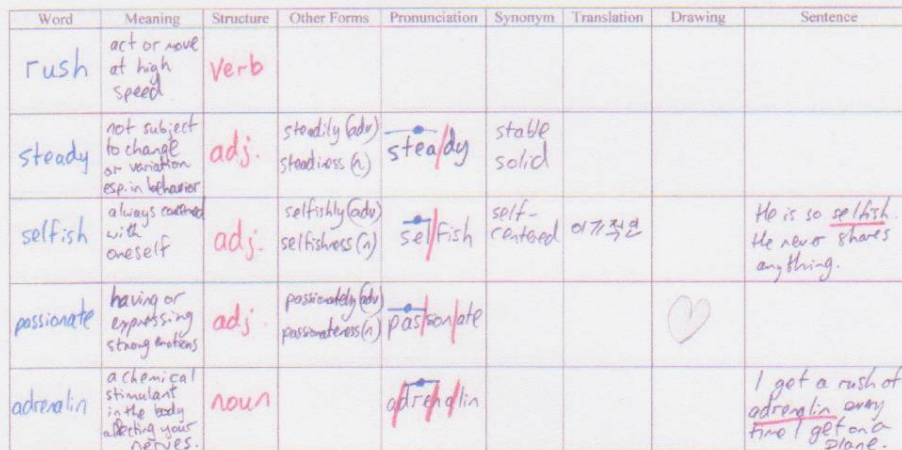 Word Meaning Structure Other Forms Pronunciation Synonym Translation Drawing Sentence
rush
act or move
at high
speed.
verb
steady
not subject
to change
or variation
esp. in behavior
adj.
steadily (adv)
steadiness (n)
stea/dy
stable
solid
selfish
always
with
oneself
adj.
selfishly (adv)
selfishness (n)
sel/fish
self-
centered
이기적인
He is so selfish.
He never shares
anything.
passionate
having or
expressing
strong emotions
adj.
passionately (adv)
passionateness (n)
pas/sion/ate
adrenalin
a chemical
stimulant
in the body
affecting your
nerves.
noun
a/dre/na/lin
I get a rush of
adrenalin every
time I get on a
plane.